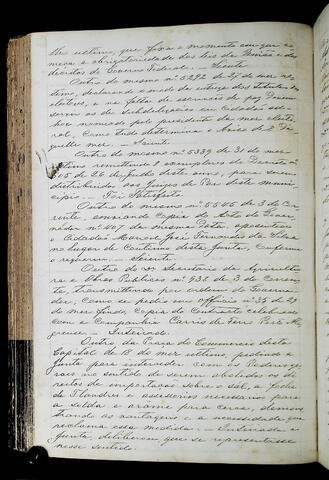 ultimo, que fixa o momento em que co
meça a obrigatoriedade das leis da União e dos
decretos do Governo Federal. — Sciente.
Outro do mesmo nº 5292 de 29 de mez ul
timo, declarando o modo da entrega dos titulos de
eleitores, e na falta de escrivães de paz
servem os de subdelegacia ou Cidadão
nomeado pelo presidente da meza eleito
ral, como tudo determina o Aviso de 2 d'
aquelle mez. — Sciente.
Outro do mesmo nº 5339 de 31 de mez
ultimo remettendo 8 exemplares do Decreto nº
605 de 26 de Julho deste anno, para serem
distribuidos aos Juizes de Paz deste muni
cipio. — Foi satisfeito.
Outro do mesmo nº 5545 de 3 do cor
rente, enviando Copia do Acto do Gover
nador nº 407 da mesma data,
o Cidadão Manoel José Fernandes da Silva
no lugar de Continuo desta Junta, conforme
o requereu. — Sciente.
Outro do Secretario da Agricultu
ra e Obras Publicas nº 938 de 3 do corren
te, transmittindo por ordem do Governa
dor, como se pedio em officio nº 35 de 29
do mez findo, Copia do Contracto celebrado
com a Companhia Carris de Ferro Porto Ale
grense. — Inteirado.
Outro da Praça do Commercio desta
Capital de 18 do mez ultimo, pedindo a
Junta para interceder com os Poderes ge
raes no sentido de serem abolidos os di
reitos de importação sobre o sal, a folha
de Flandres e accessorios necessarios para
a solda e arame para cerca, demons
trando as vantagens e a necessidade que
reclama essa medida. — Inteirada a
Junta, deliberou que se representasse
nesse sentido.